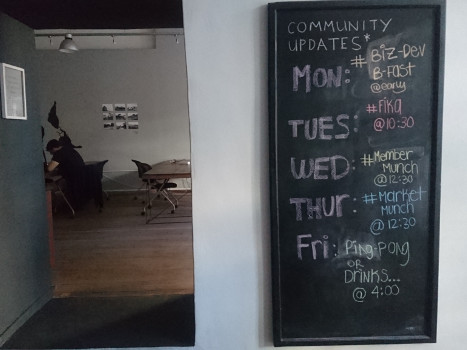 COMMUNITY
UPDATES*
MON: #BIZ-DEV
B-FAST
@early
TUES: #FIKA
@10:30
WED: #Member
Munch
@12:30
THUR: #Market
Munch
@12:30
Fri: Ping-Pong
OR
DRINKS...
@ 4:00